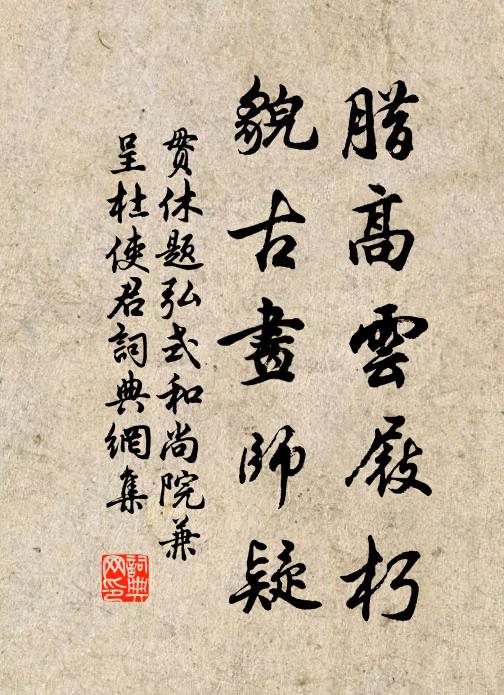 腊高雲屐朽
貌古畫師疑
貫休題弘式和尚院兼
呈杜使君詞典網集
詞典網印